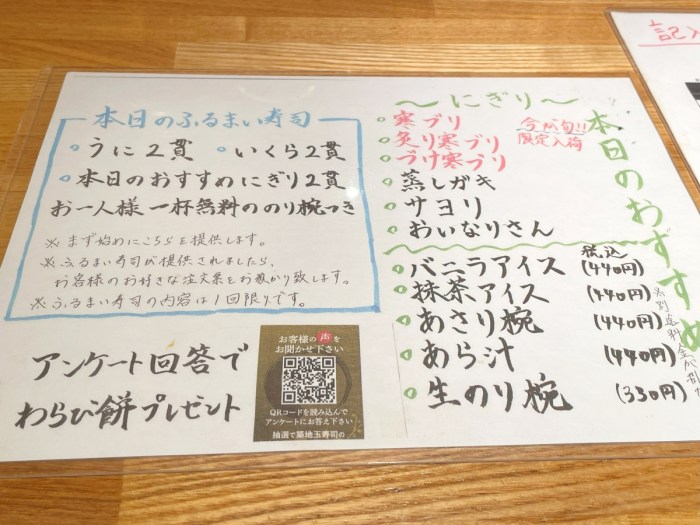 本日のふるまい寿司
・うに2貫 ・いくら2貫
・本日のおすすめにぎり2貫
お一人様一杯無料ののり椀つき
※まず始めにこちらを提供します。
※ふるまい寿司が提供されましたら、
お客様のお好きな注文票をお預かり致します。
※ふるまい寿司の内容は1回限りです。
アンケート回答で
わらび餅プレゼント
お客様の声を
お聞かせ下さい
QRコードを読み込んで
アンケートにお答え下さい
抽選で築地玉寿司の
〜にぎり〜
寒ブリ
炙り寒ブリ
づけ寒ブリ
今が旬!!
限定入荷
蒸しガキ
サヨリ
おいなりさん
税込
バニラアイス (440円)
抹茶アイス (440円)
あさり椀 (440円)
あら汁 (440円)
生のり椀 (330円)
本日のおすすめ
※別途料金が
記入